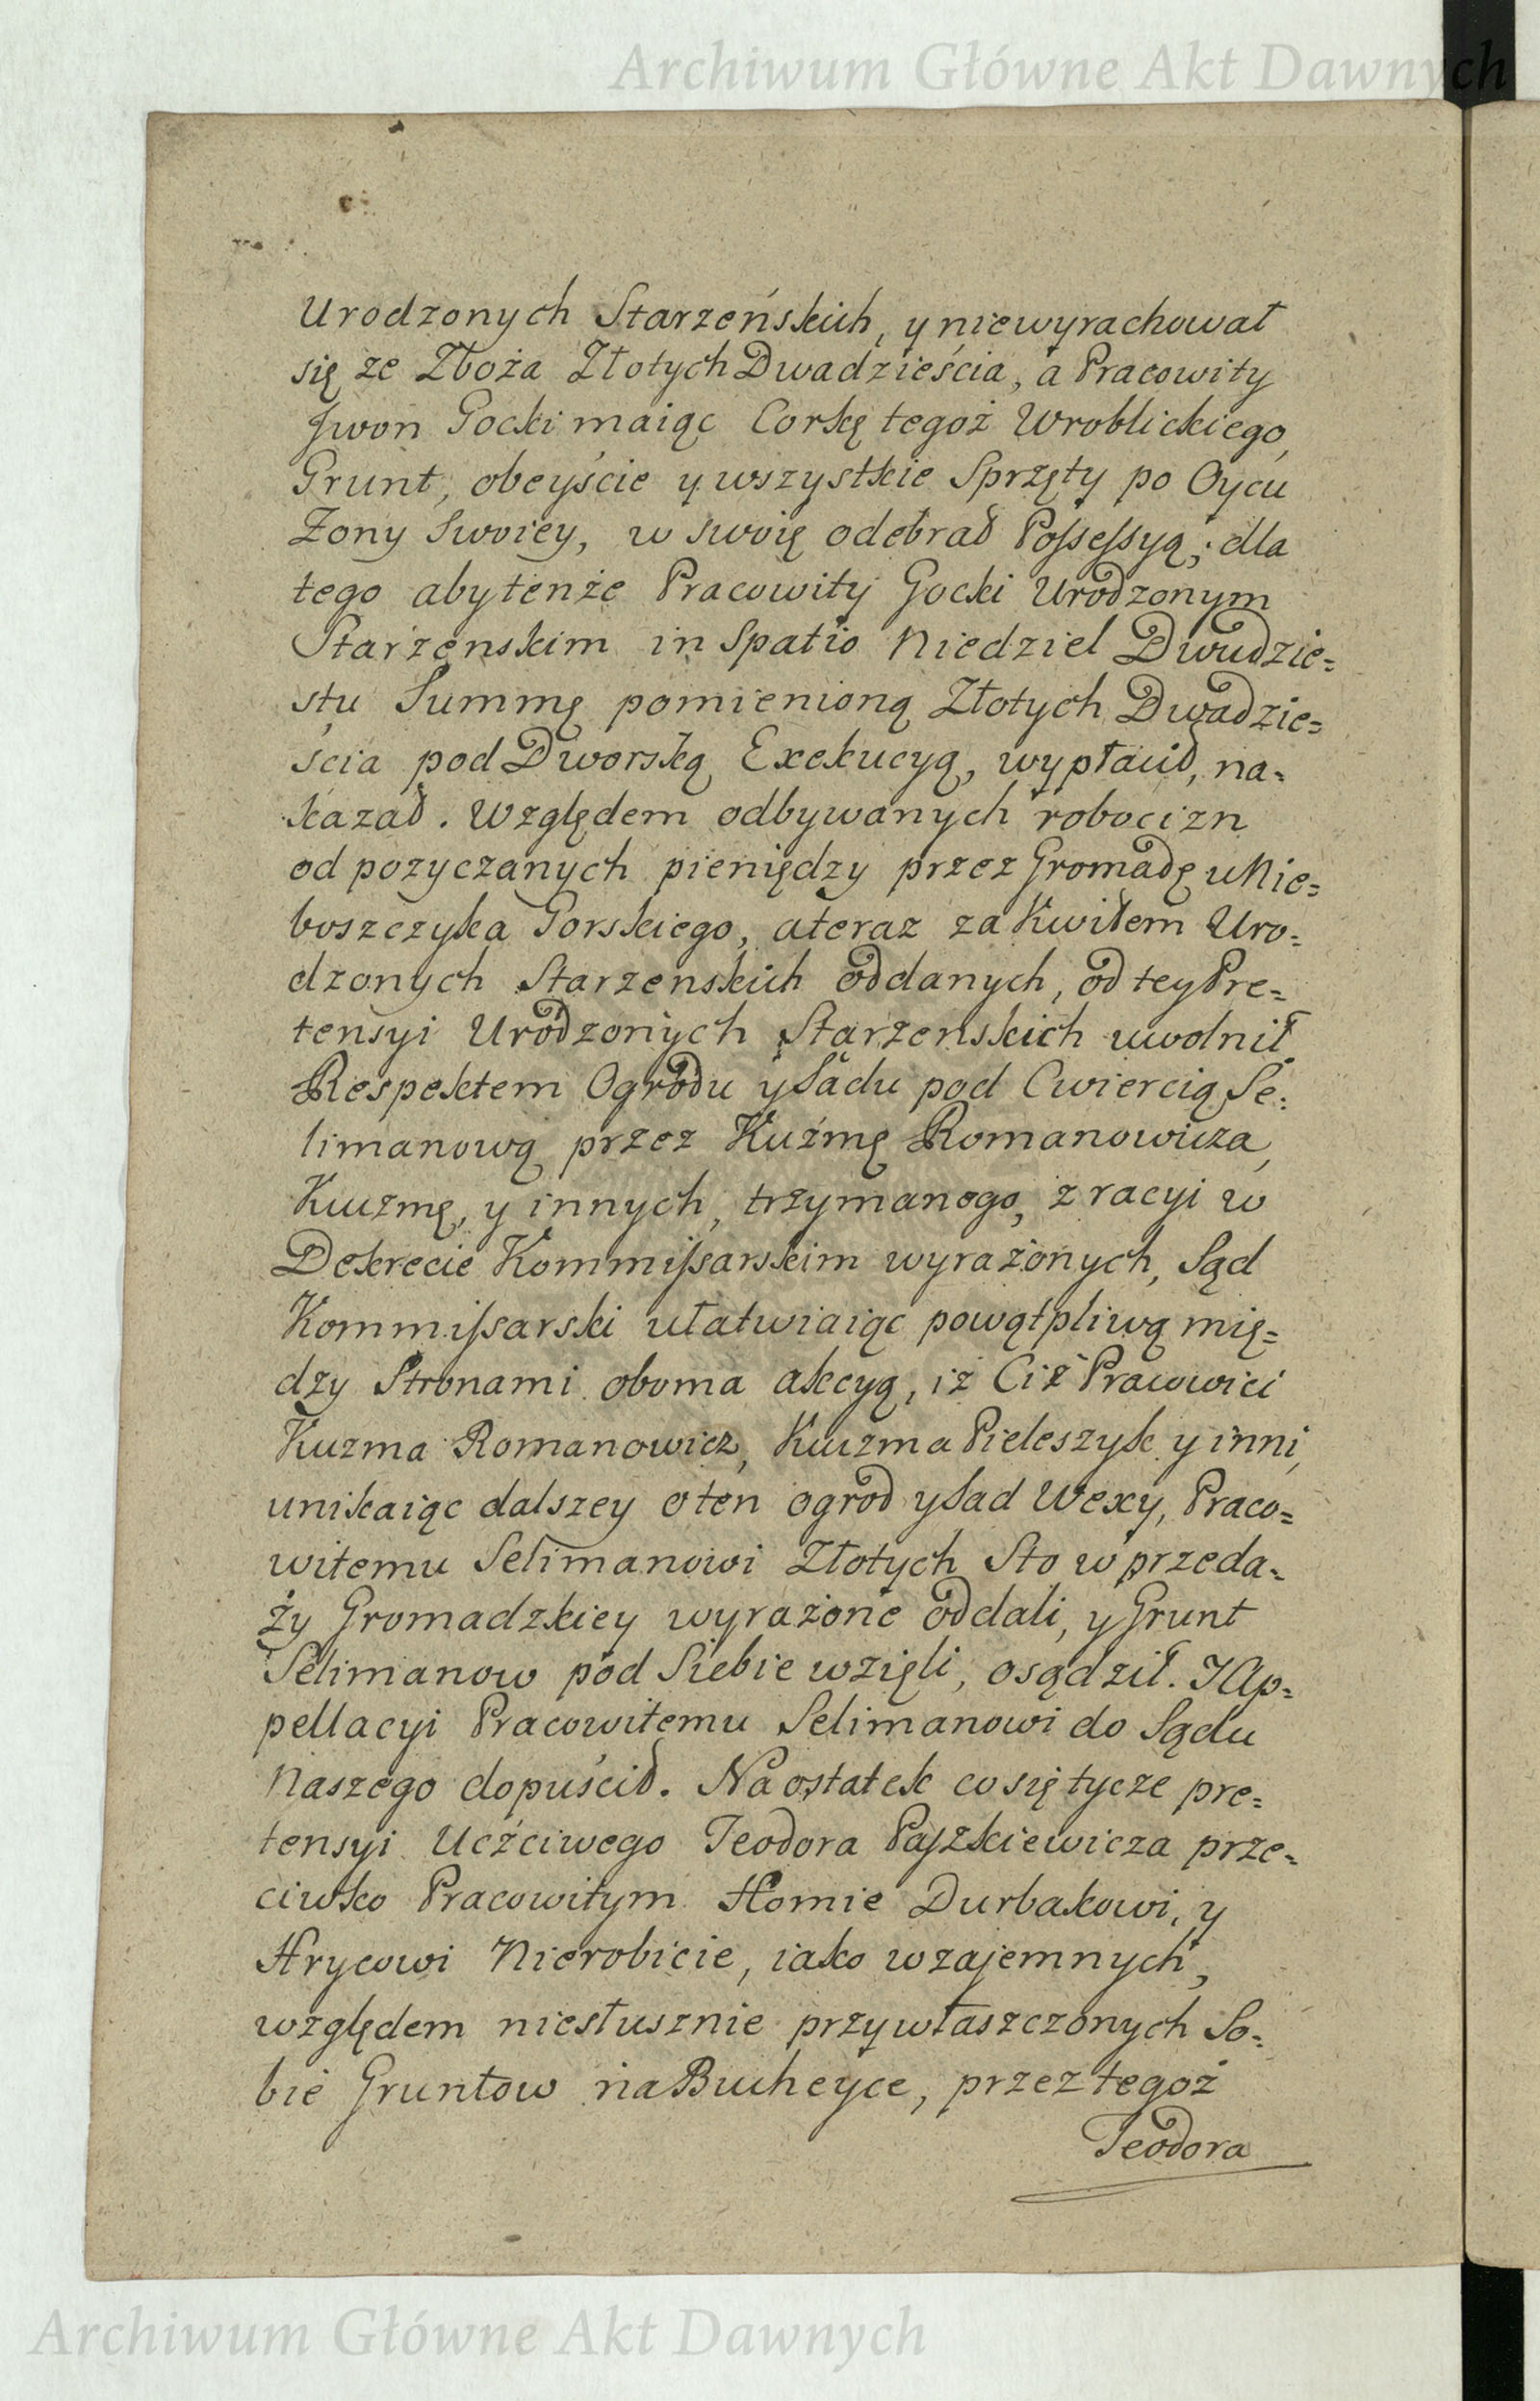 Archiwum Główne Akt Dawnych
Urodzonych Starzeńskich, y niewyrachował
się ze Zboża Złotych Dwadzieścia, a Pracowity
Jwon Gocki maiąc Corkę tegoż Wroblickiego,
Grunt, obeyście y wszystkie Sprzęty po Oycu
Żony Swoiey, w swoię odebrał Possessyą; dla
tego aby tenże Pracowity Gocki Urodzonym
Starzenskim in Spatio Niedziel Dwudzie=
stu Summę pomienioną Złotych Dwadzie=
ścia pod Dworską Exekucyą, wypłacił, na=
kazał. Względem odbywanych robocizn
od pozyczanych pieniędzy przez Gromadę u Nie=
boszczyka Gorskiego, a teraz za Kwitem Uro=
dzonych Starzenskich oddanych, od tey Pre=
tensyi Urodzonych Starzenskich uwolnił
Respektem Ogrodu y Sadu pod Cwiercią Se=
limanową przez Kuźmę Romanowicza,
Kuzmę, y innych, trzymanego, z racyi w
Dekrecie Kommissarskim wyrażonych, Sąd
Kommissarski ułatwiaiąc powątpliwą mię=
dzy Stronami oboma akcyą, iż Ciż Pracowici
Kuzma Romanowicz, Kuzma Pieleszyk y inni,
unikaiąc dalszey o ten ogrod y Sad Wexy, Praco=
witemu Selimanowi Złotych Sto w przeda=
ży Gromadzkiey wyrażone oddali, y Grunt
Selimanow pod Siebie wzięli, osądził. I Ap=
pellacyi Pracowitemu Selimanowi do Sądu
Naszego dopuścił. Na ostatek co się tycze pre=
tensyi Uczciwego Teodora Paszkiewicza prze=
ciwko Pracowitym Homie Durbakowi, y
Hrycowi Nierobicie, iako wzajemnych,
względem niesłusznie przywłaszczonych So=
bie Gruntow na Bucheyce, przez tegoż
Teodora
Archiwum Główne Akt Dawnych